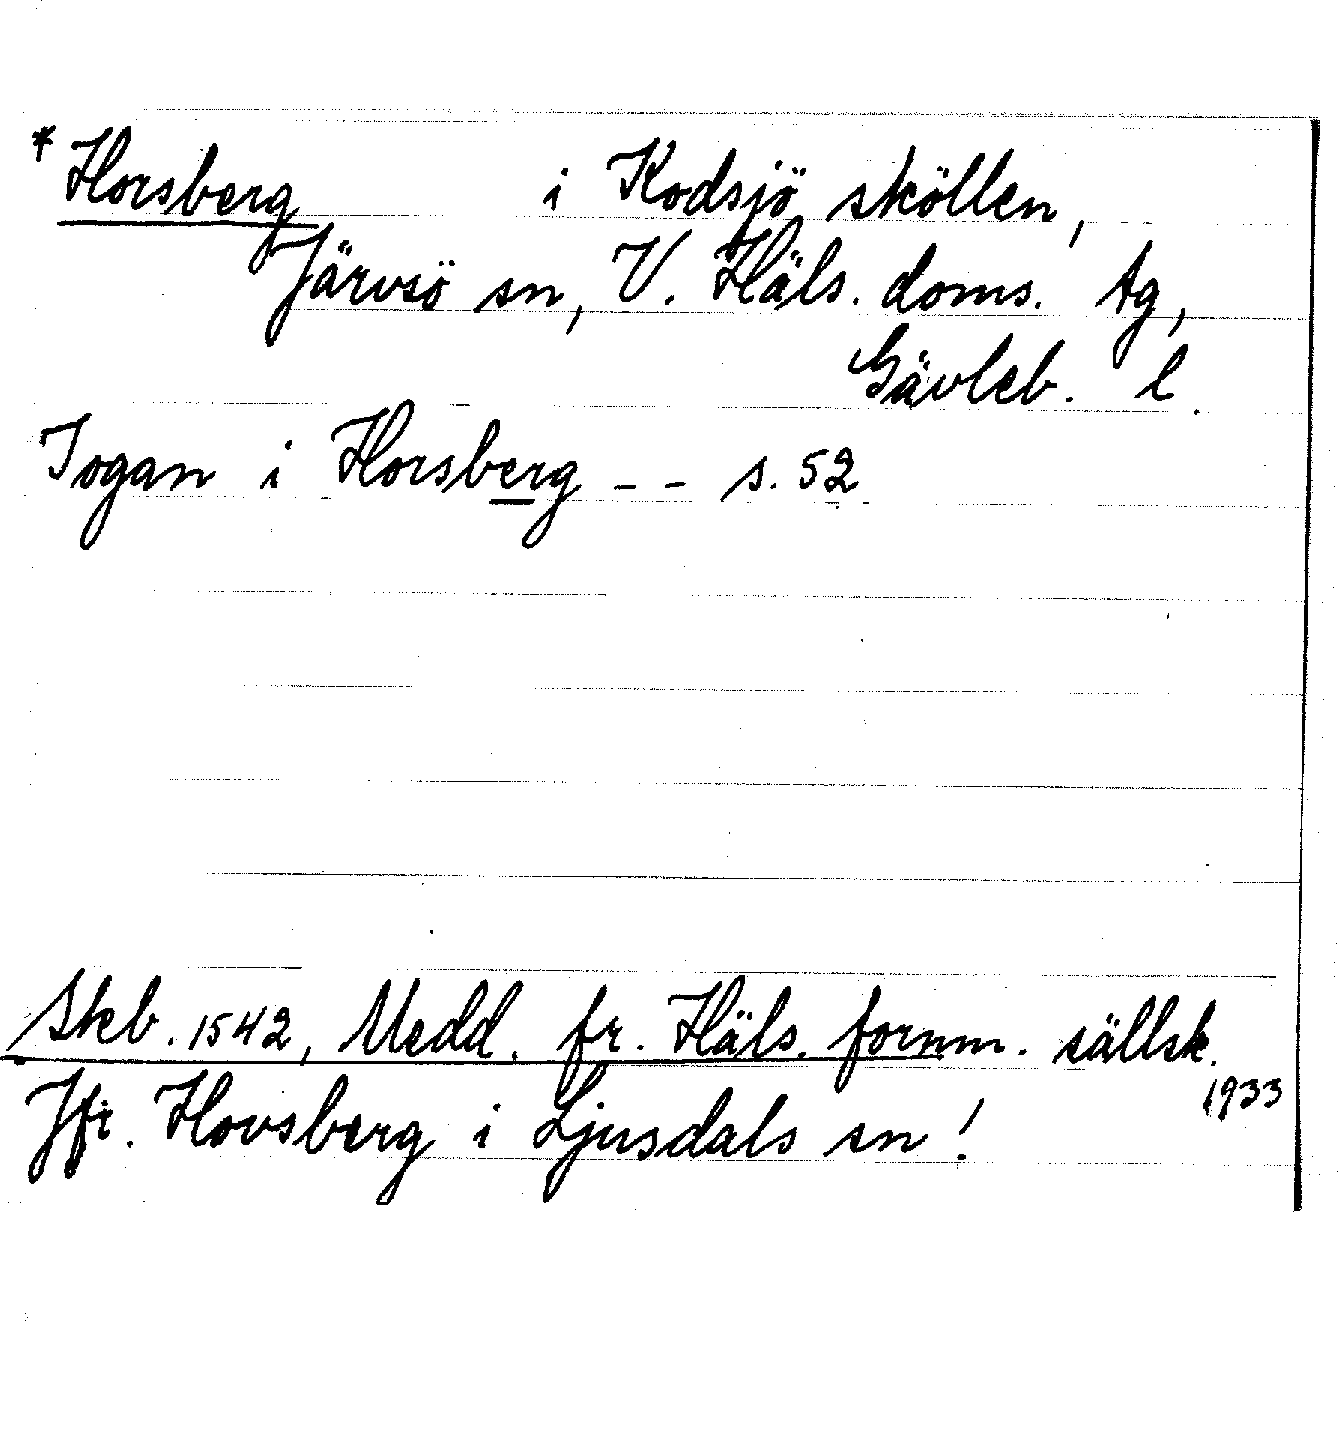 * Horsberg i Kodsjö sköllen,
Järvsö sn, V. Häls. doms. tg,
Gävleb. l.
Jogan i Horsberg - - s. 52
Skeb. 1542, Medd. fr. Häls. fornm. sällsk.
1933
Jfr. Hovsberg i Ljusdals sn!